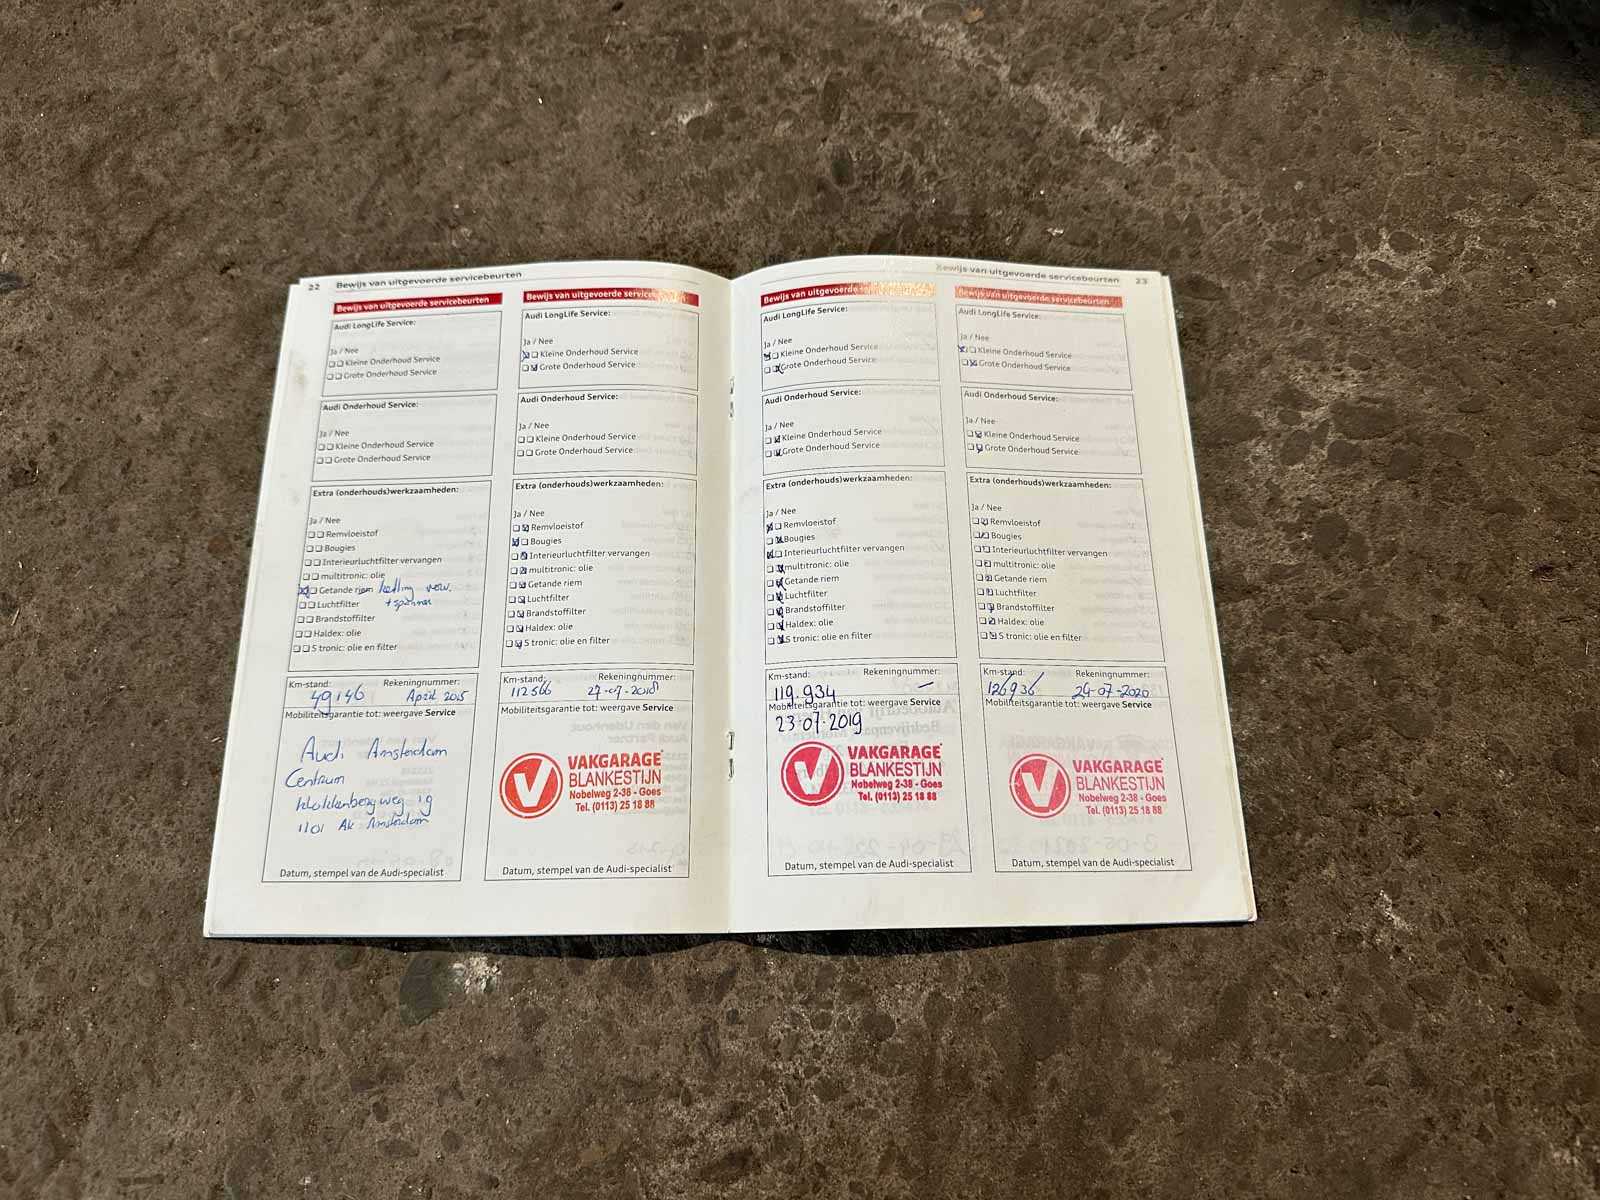 22 Bewijs van uitgevoerde servicebeurten
Bewijs van uitgevoerde servicebeurten
Audi LongLife Service:
Ja / Nee
Kleine Onderhoud Service
Grote Onderhoud Service
Audi Onderhoud Service:
Ja / Nee
Kleine Onderhoud Service
Grote Onderhoud Service
Extra (onderhouds)werkzaamheden:
Ja / Nee
Remvloeistof
Bougies
Interieurluchtfilter vervangen
multitronic: olie
Getande riem ketting verv.
Luchtfilter + spanner
Brandstoffilter
Haldex: olie
S tronic: olie en filter
Km-stand: Rekeningnummer:
49146 April 2015
Mobiliteitsgarantie tot: weergave Service
Audi Amsterdam
Centrum
1101 AK Amsterdam
Datum, stempel van de Audi-specialist
Bewijs van uitgevoerde servicebeurten
Audi LongLife Service:
Ja / Nee
Kleine Onderhoud Service
Grote Onderhoud Service
Audi Onderhoud Service:
Ja / Nee
Kleine Onderhoud Service
Grote Onderhoud Service
Extra (onderhouds)werkzaamheden:
Ja / Nee
Remvloeistof
Bougies
Interieurluchtfilter vervangen
multitronic: olie
Getande riem
Luchtfilter
Brandstoffilter
Haldex: olie
S tronic: olie en filter
Km-stand: Rekeningnummer:
112566 27-07-2018
Mobiliteitsgarantie tot: weergave Service
VAKGARAGE
BLANKESTIJN
Nobelweg 2-38 - Goes
Tel. (0113) 25 18 88
Datum, stempel van de Audi-specialist
Bewijs van uitgevoerde servicebeurten 23
Bewijs van uitgevoerde servicebeurten
Audi LongLife Service:
Ja / Nee
Kleine Onderhoud Service
Grote Onderhoud Service
Audi Onderhoud Service:
Ja / Nee
Kleine Onderhoud Service
Grote Onderhoud Service
Extra (onderhouds)werkzaamheden:
Ja / Nee
Remvloeistof
Bougies
Interieurluchtfilter vervangen
multitronic: olie
Getande riem
Luchtfilter
Brandstoffilter
Haldex: olie
S tronic: olie en filter
Km-stand: Rekeningnummer:
119.934 —
Mobiliteitsgarantie tot: weergave Service
23-07-2019
VAKGARAGE
BLANKESTIJN
Nobelweg 2-38 - Goes
Tel. (0113) 25 18 88
Datum, stempel van de Audi-specialist
Bewijs van uitgevoerde servicebeurten
Audi LongLife Service:
Ja / Nee
Kleine Onderhoud Service
Grote Onderhoud Service
Audi Onderhoud Service:
Ja / Nee
Kleine Onderhoud Service
Grote Onderhoud Service
Extra (onderhouds)werkzaamheden:
Ja / Nee
Remvloeistof
Bougies
Interieurluchtfilter vervangen
multitronic: olie
Getande riem
Luchtfilter
Brandstoffilter
Haldex: olie
S tronic: olie en filter
Km-stand: Rekeningnummer:
126936 24-07-2020
Mobiliteitsgarantie tot: weergave Service
VAKGARAGE
BLANKESTIJN
Nobelweg 2-38 - Goes
Tel. (0113) 25 18 88
Datum, stempel van de Audi-specialist